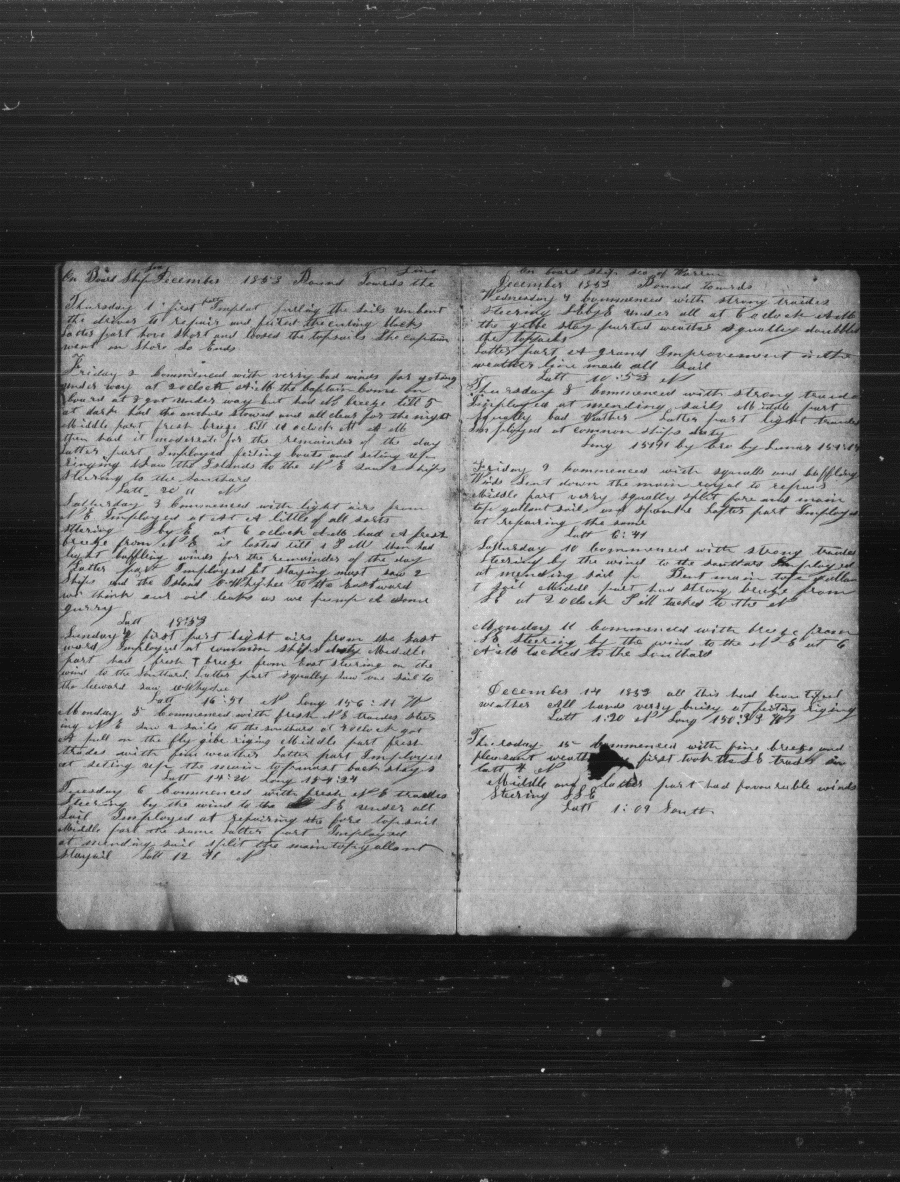 On Board Ship Sea December 1853 Bound Towards the Line
Thursday 1 first part Employed furling the sails unbent
the driver to repair and fitted the cuting blocks
Latter part hove short and loosed the topsails The captain
went on shore So Ends
Friday 2 Commenced with verry bad winds for geting
under way at 2 oclock A M the captain come on
board at 3 got under way but had N breeze till 5
at dark had the anchors stowed and all clear for the night
Middle part fresh breeze till 11 oclock
then had it moderate for the remainder of the day
Latter part Employed fixing boats and seting up
riging Saw the Islands to the N E Saw 2 ships
Steering to the Southard
Latt 20 11 N
Saturday 3 Commenced with light airs from
N E Employed at a little of all sorts
Steering S by E at 6 oclock had a fresh
breeze from N E it lasted till 8 P M then had
light baffling winds for the remainder of the day
Latter part Employed at staying mast Saw 2
Ships and the Island Owhyhee to the Eastward
we think our oil leaks as we pump a some
gurry
Latt 18:53
Sunday 4 first part light airs from the East
ward Employed at common ships duty Middle
part had fresh breeze from East steering on the
wind to the Southard Latter part squally Saw one sail to
the leeward saw Owhyhee
Latt 16:51 N Long 156:11 W
Monday 5 Commenced with fresh N E traides Steer
ing S E Saw 2 sails to the southard at 2 oclock got
A pull on the fly gibe riging Middle part fresh
trades with fine weather Latter part Employed
at seting up the main topmast back stays
Latt 14:20 Long 154:24
Tuesday 6 Commenced with fresh N E traides
Steering by the wind to the S E under all
Sail Employed at repairing the fore top sail
Middle part the same Latter part Employed
at mending sail split the main top gallant
Staysail Latt 12 41 N
On board ship Sea of Warren
December 1853 Bound towards
Wednesday 7 Commenced with strong traides
Steering S by E under all at 6 oclock A M
the gibbe stay parted weather squally doubled
the topsails
Latter part A grand Improvement in the
weather line made all Sail
Latt 10:53 N
Thursday 8 Commenced with strong traids
Employed at mending sails Middle part
squally bad Weather Latter part light traides
Employed at common ships duty
Long 151 by Cro by Lunar
Friday 9 Commenced with squalls and baffling
Winds sent down the main royal to repair
Middle part verry squally split fore and main
top gallant sails and spanker Latter part Employed
at repairing the same
Latt 6:41
Saturday 10 Commenced with strong traides
Steering by the wind to the southard Employed
at mending sail Bent main top gallan
t sail Middle part had strong breeze from
S E at 2 oclock P M tacked to the
Monday 11 Commenced with breeze from
S E Steering by the wind to the N E at 6
A M tacked to the Southard
December 14 1853 all this had beautifful
weather All hands verry buisy at fixing riging
Latt 1:20 N Long 150:33 W
Thursday 15 Commenced with fine breeze and
pleasant weather first took the S E traids in
latt 4 N
Middle and Latter part had favourable winds
Steering S S E
Latt 1:09 South